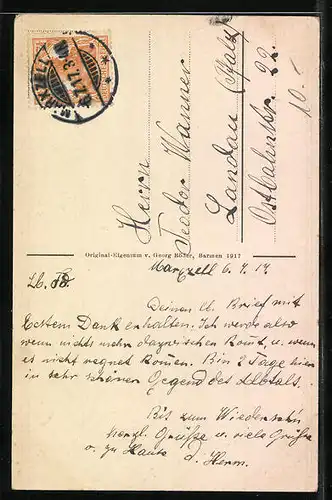 MARXZELL
Herrn
Teodor Wanner
Landau (Pfalz)
Ostbahnstr. 22
Original-Eigentum v. Georg Rößer, Barmen 1917
Marxzell 6.7.17
Lb.
Deinen lb. Brief mit
Bestem Dank erhalten. Ich werde also
wenn nichts mehr dazwischen komt, u. wenn
es nicht regnet komen. Bin 2 Tage hier
in sehr schönen Gegend des Albtals.
Bis zum Wiedersehn
herzl. Grüsse u. viele Grüsse
a. zu Hause d. Herm.